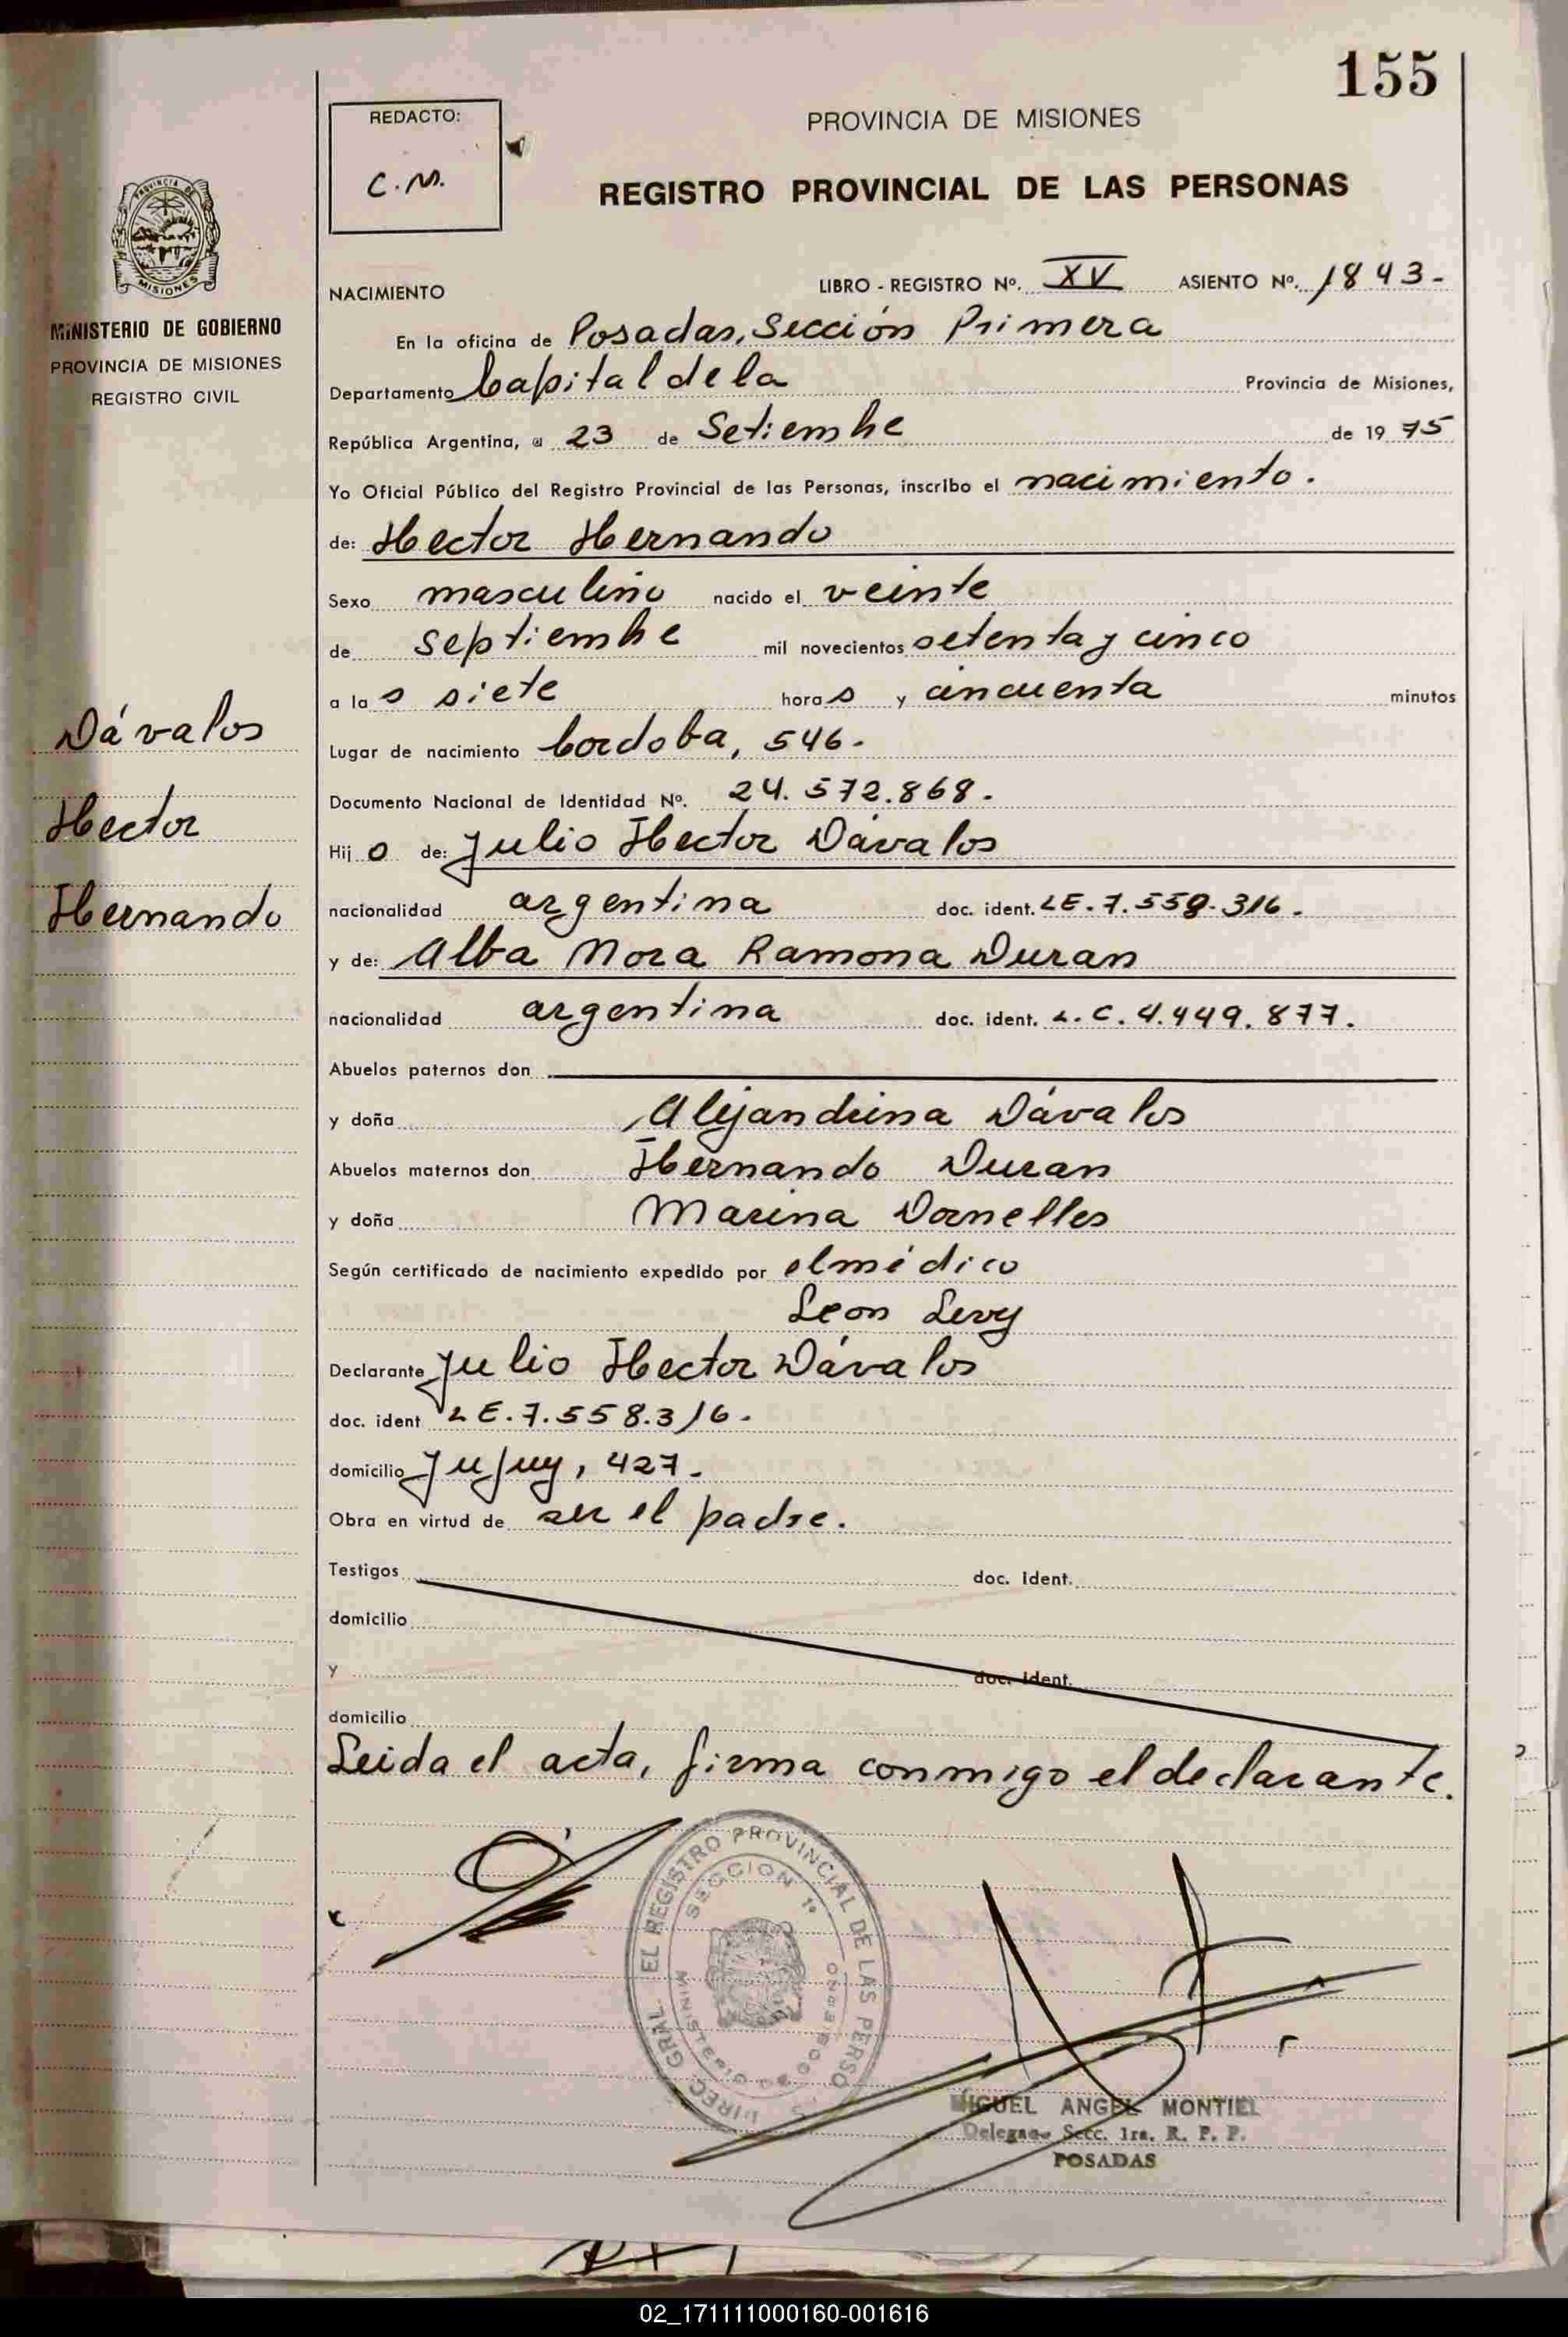 155
REDACTO:
C.M.
PROVINCIA DE MISIONES
REGISTRO PROVINCIAL DE LAS PERSONAS
PROVINCIA DE
MISIONES
MINISTERIO DE GOBIERNO
PROVINCIA DE MISIONES
REGISTRO CIVIL
NACIMIENTO
LIBRO - REGISTRO Nº. XV ASIENTO Nº. 1843-
En la oficina de Posadas, Sección Primera
Departamento Capital de la Provincia de Misiones,
República Argentina, a 23 de Setiembre de 19 75
Yo Oficial Público del Registro Provincial de las Personas, inscribo el nacimiento.
de: Hector Hernando
Sexo masculino nacido el veinte
de septiembre mil novecientos setenta y cinco
a la s siete hora s y cincuenta minutos
Lugar de nacimiento Cordoba, 546.
Documento Nacional de Identidad Nº. 24.572.868.
Hij o de: Julio Hector Dávalos
nacionalidad argentina doc. ident. LE.7.558.316.
y de: Alba Nora Ramona Duran
nacionalidad argentina doc. ident. L.C.4.449.877.
Abuelos paternos don
y doña Alejandrina Dávalos
Abuelos maternos don Hernando Duran
y doña Marina Dornelles
Según certificado de nacimiento expedido por el médico
Leon Levy
Declarante Julio Hector Dávalos
doc. ident LE.7.558.316.
domicilio Jujuy, 427.
Obra en virtud de ser el padre.
Testigos doc. ident.
domicilio
y doc. ident.
domicilio
Leida el acta, firma conmigo el declarante.
Dávalos
Hector
Hernando
DIREC. GRAL. EL REGISTRO PROVINCIAL DE LAS PERSO S
SECCION 1ª
MINISTERIO DE GOBIERNO
MIGUEL ANGEL MONTIEL
Delegado Secc. 1ra. R. P. P.
POSADAS
02_171111000160-001616